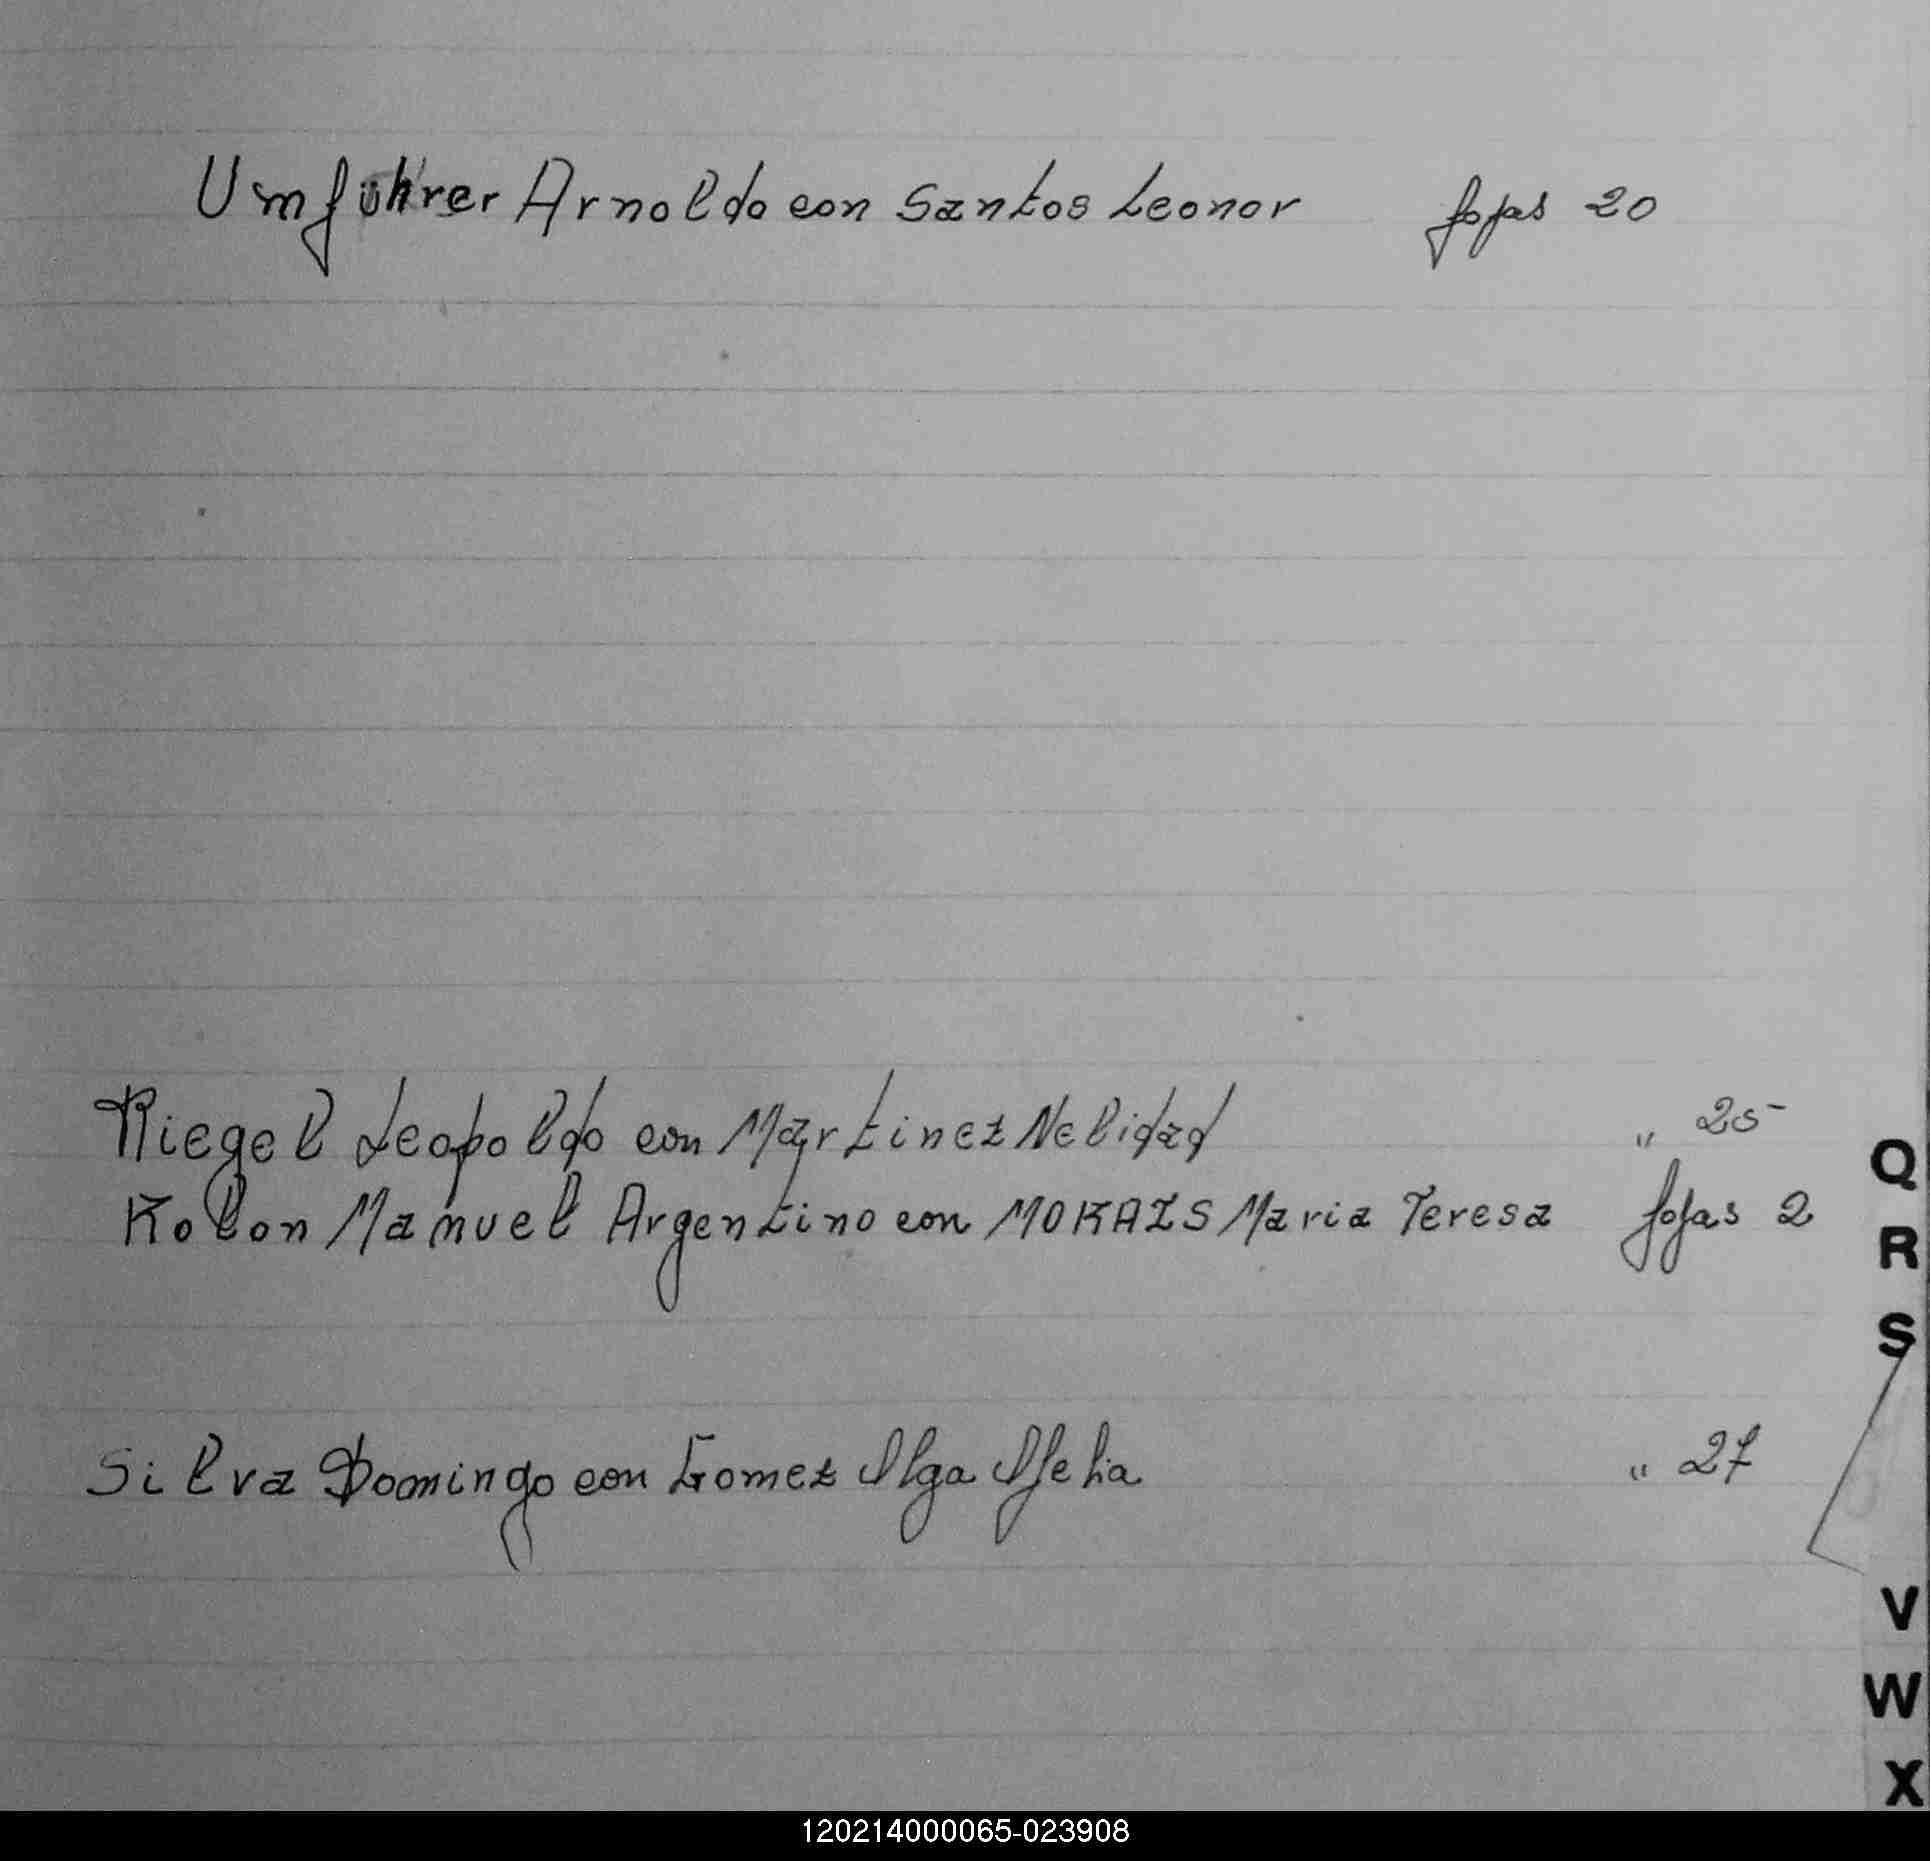 Umführer Arnoldo con Santos Leonor fojas 20
Riegel Leopoldo con Martinez Nelidad " 25
Kolon Manuel Argentino con MOKAIS Maria Teresa fojas 2
Silva Domingo con Gomez Olga Ofelia " 27
Q
R
S
V
W
X
120214000065-023908